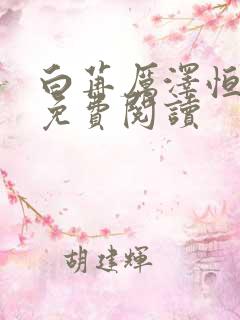 白苒厲澤恒
免費閱讀
胡建輝